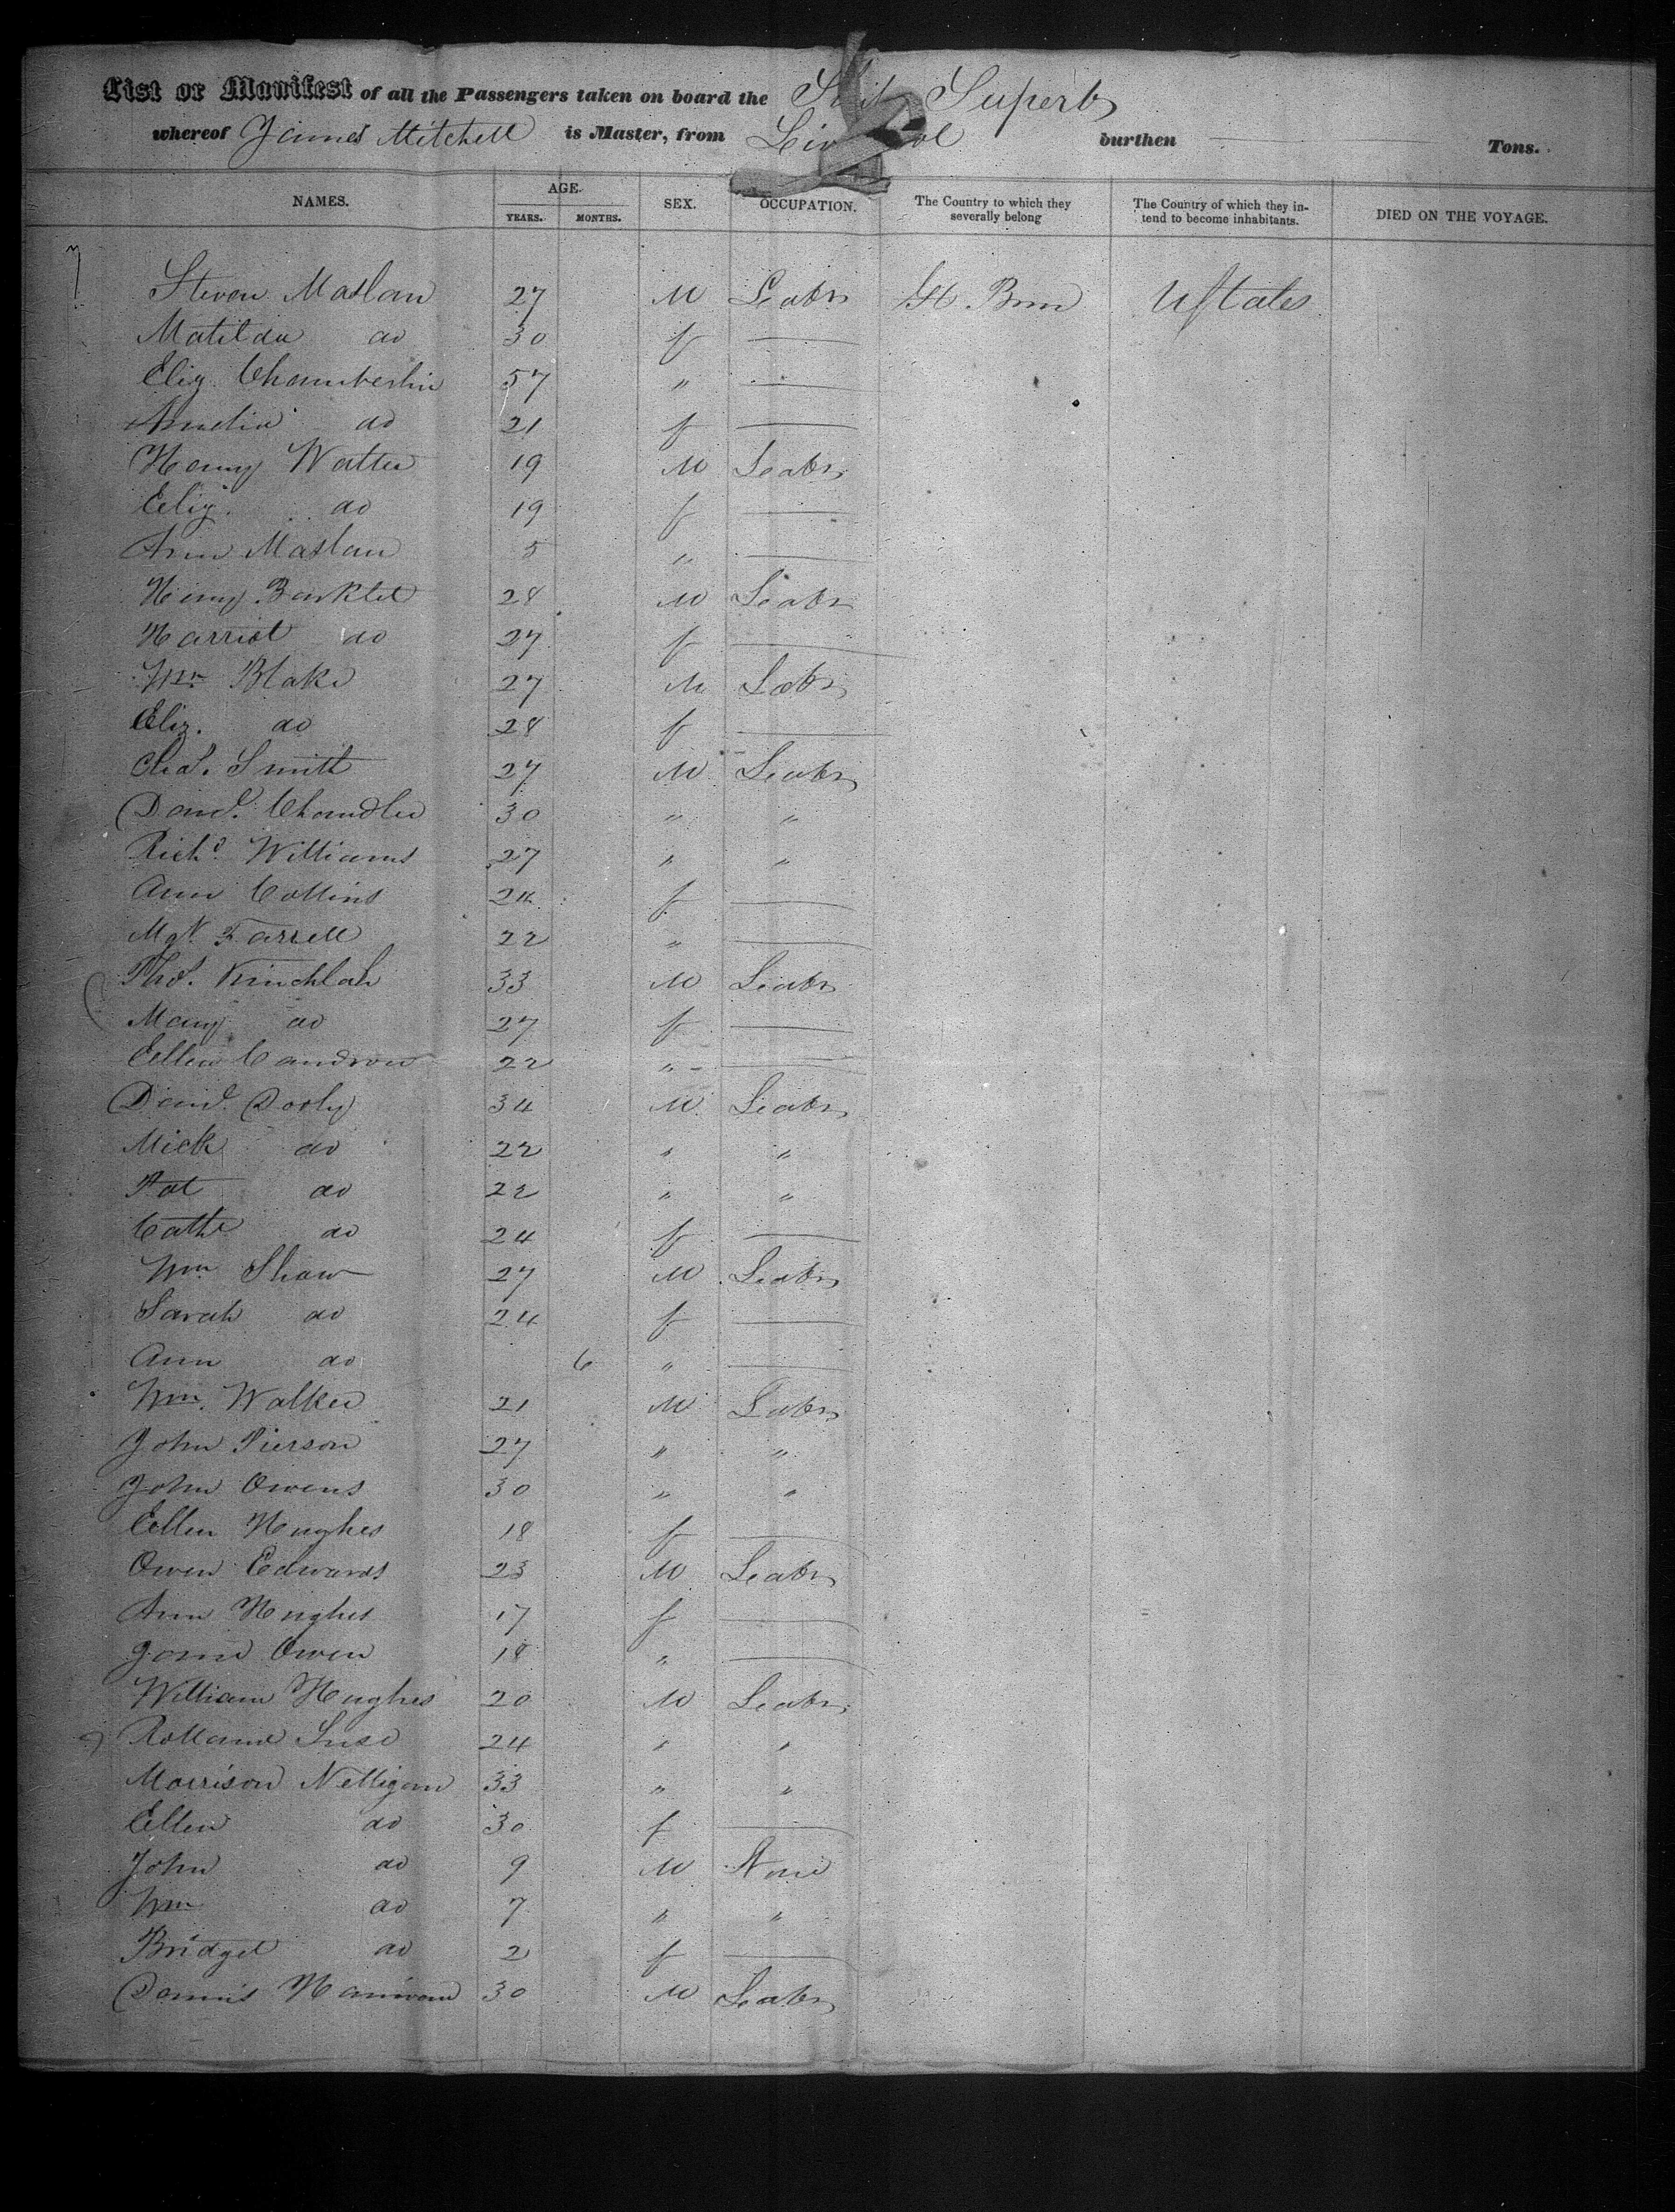 List or Manifest of all the Passengers taken on board the Ship Superb
whereof James Mitchell is Master, from Liverpool burthen Tons.
NAMES. AGE. SEX. OCCUPATION. The Country to which they severally belong The Country of which they intend to become inhabitants. DIED ON THE VOYAGE.
YEARS. MONTHS.
Steven Maslan 27 M Labr Gt. Brn UStates
Matilda do 30 f
Eliz Chamberlin 57 "
Amelia do 21 f
Henry Walter 19 M Labr
Eliz. do 19 f
Ann Maslan 5 "
Henry 28 M Labr
Harriet do 27 f
Wm Blake 27 M Labr
Eliz. do 28 f
Chas. Smith 27 M Labr
Danl. Chandler 30 " "
Richd. Williams 27 " "
Ann Collins 24 f
Mgt. Farrell 22 "
Thos. 33 M Labr
Mary do 27 f
Ellen 22 "
Danl. Dooly 34 M Labr
Mick do 22 " "
Pat do 22 " "
Cathe do 24 f
Wm Shaw 27 M Labr
Sarah do 24 f
Ann do 6 "
Wm. Walker 21 M Labr
John Pierson 27 " "
John Owens 30 " "
Ellen Hughes 18 f
Owen Edwards 23 M Labr
Ann Hughes 17 f
Jane Owen 18 "
William Hughes 20 M Labr
Rolland 24 " "
Morrison Nelligan 33 " "
Ellen do 30 f
John do 9 M None
Wm do 7 " "
Bridget do 2 f
Dennis 30 M Labr